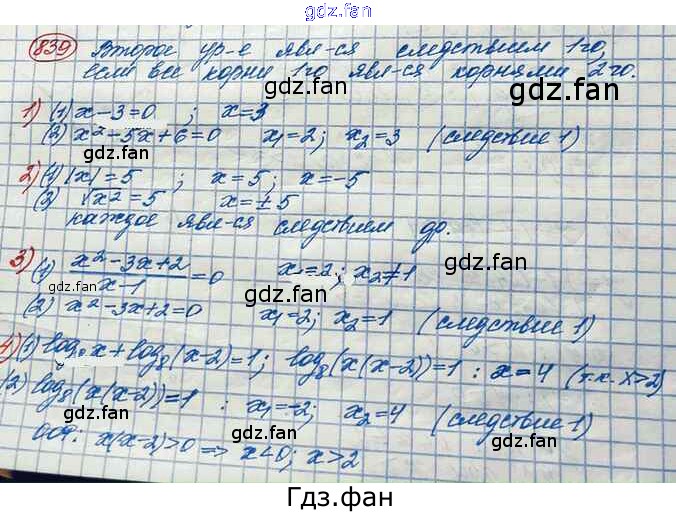 gdz.fan
gdz.fan
839 Второе ур-е явл-ся следствием 1го,
если все корни 1го явл-ся корнями 2го.
gdz.fan
gdz.fan
1) (1) x-3=0 ; x=3
(2) x²-5x+6=0 x₁=2; x₂=3 (следствие 1)
gdz.fan
gdz.fan
2) (1) |x|=5 ; x=5; x=-5
(2) √x²=5 x=±5
каждое явл-ся следствием др.
gdz.fan
3) (1) (x²-3x+2)/(x-1)=0 x=2; x₂≠1
gdz.fan
gdz.fan
(2) x²-3x+2=0 x₁=2; x₂=1 (следствие 1)
gdz.fan
4) (1) log₈x+log₈(x-2)=1; log₈(x(x-2))=1 : x=4 (т.к. x>2)
(2) log₈(x(x-2))=1 : x₁=-2; x₂=4 (следствие 1)
gdz.fan
gdz.fan
ООУ: x(x-2)>0 => x<0; x>2
gdz.fan
Гдз.фан